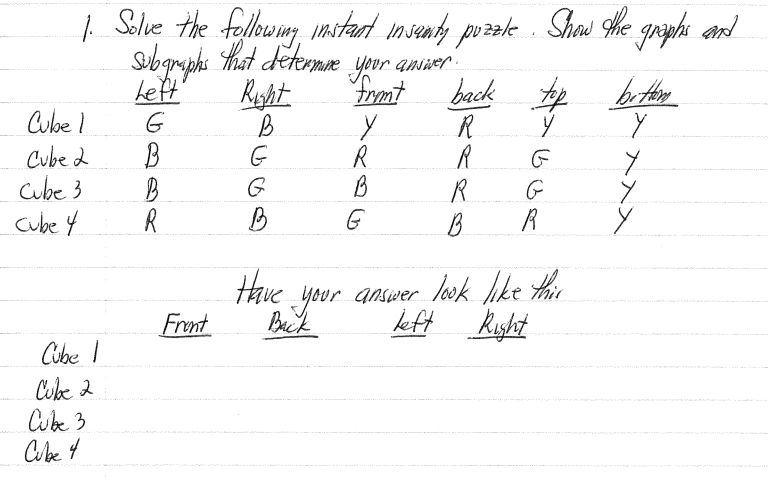 1. Solve the following instant insanity puzzle. Show the graphs and
subgraphs that determine your answer.
Left Right front back top bottom
Cube 1 G B Y R Y Y
Cube 2 B G R R G Y
Cube 3 B G B R G Y
Cube 4 R B G B R Y
Have your answer look like this
Front Back Left Right
Cube 1
Cube 2
Cube 3
Cube 4